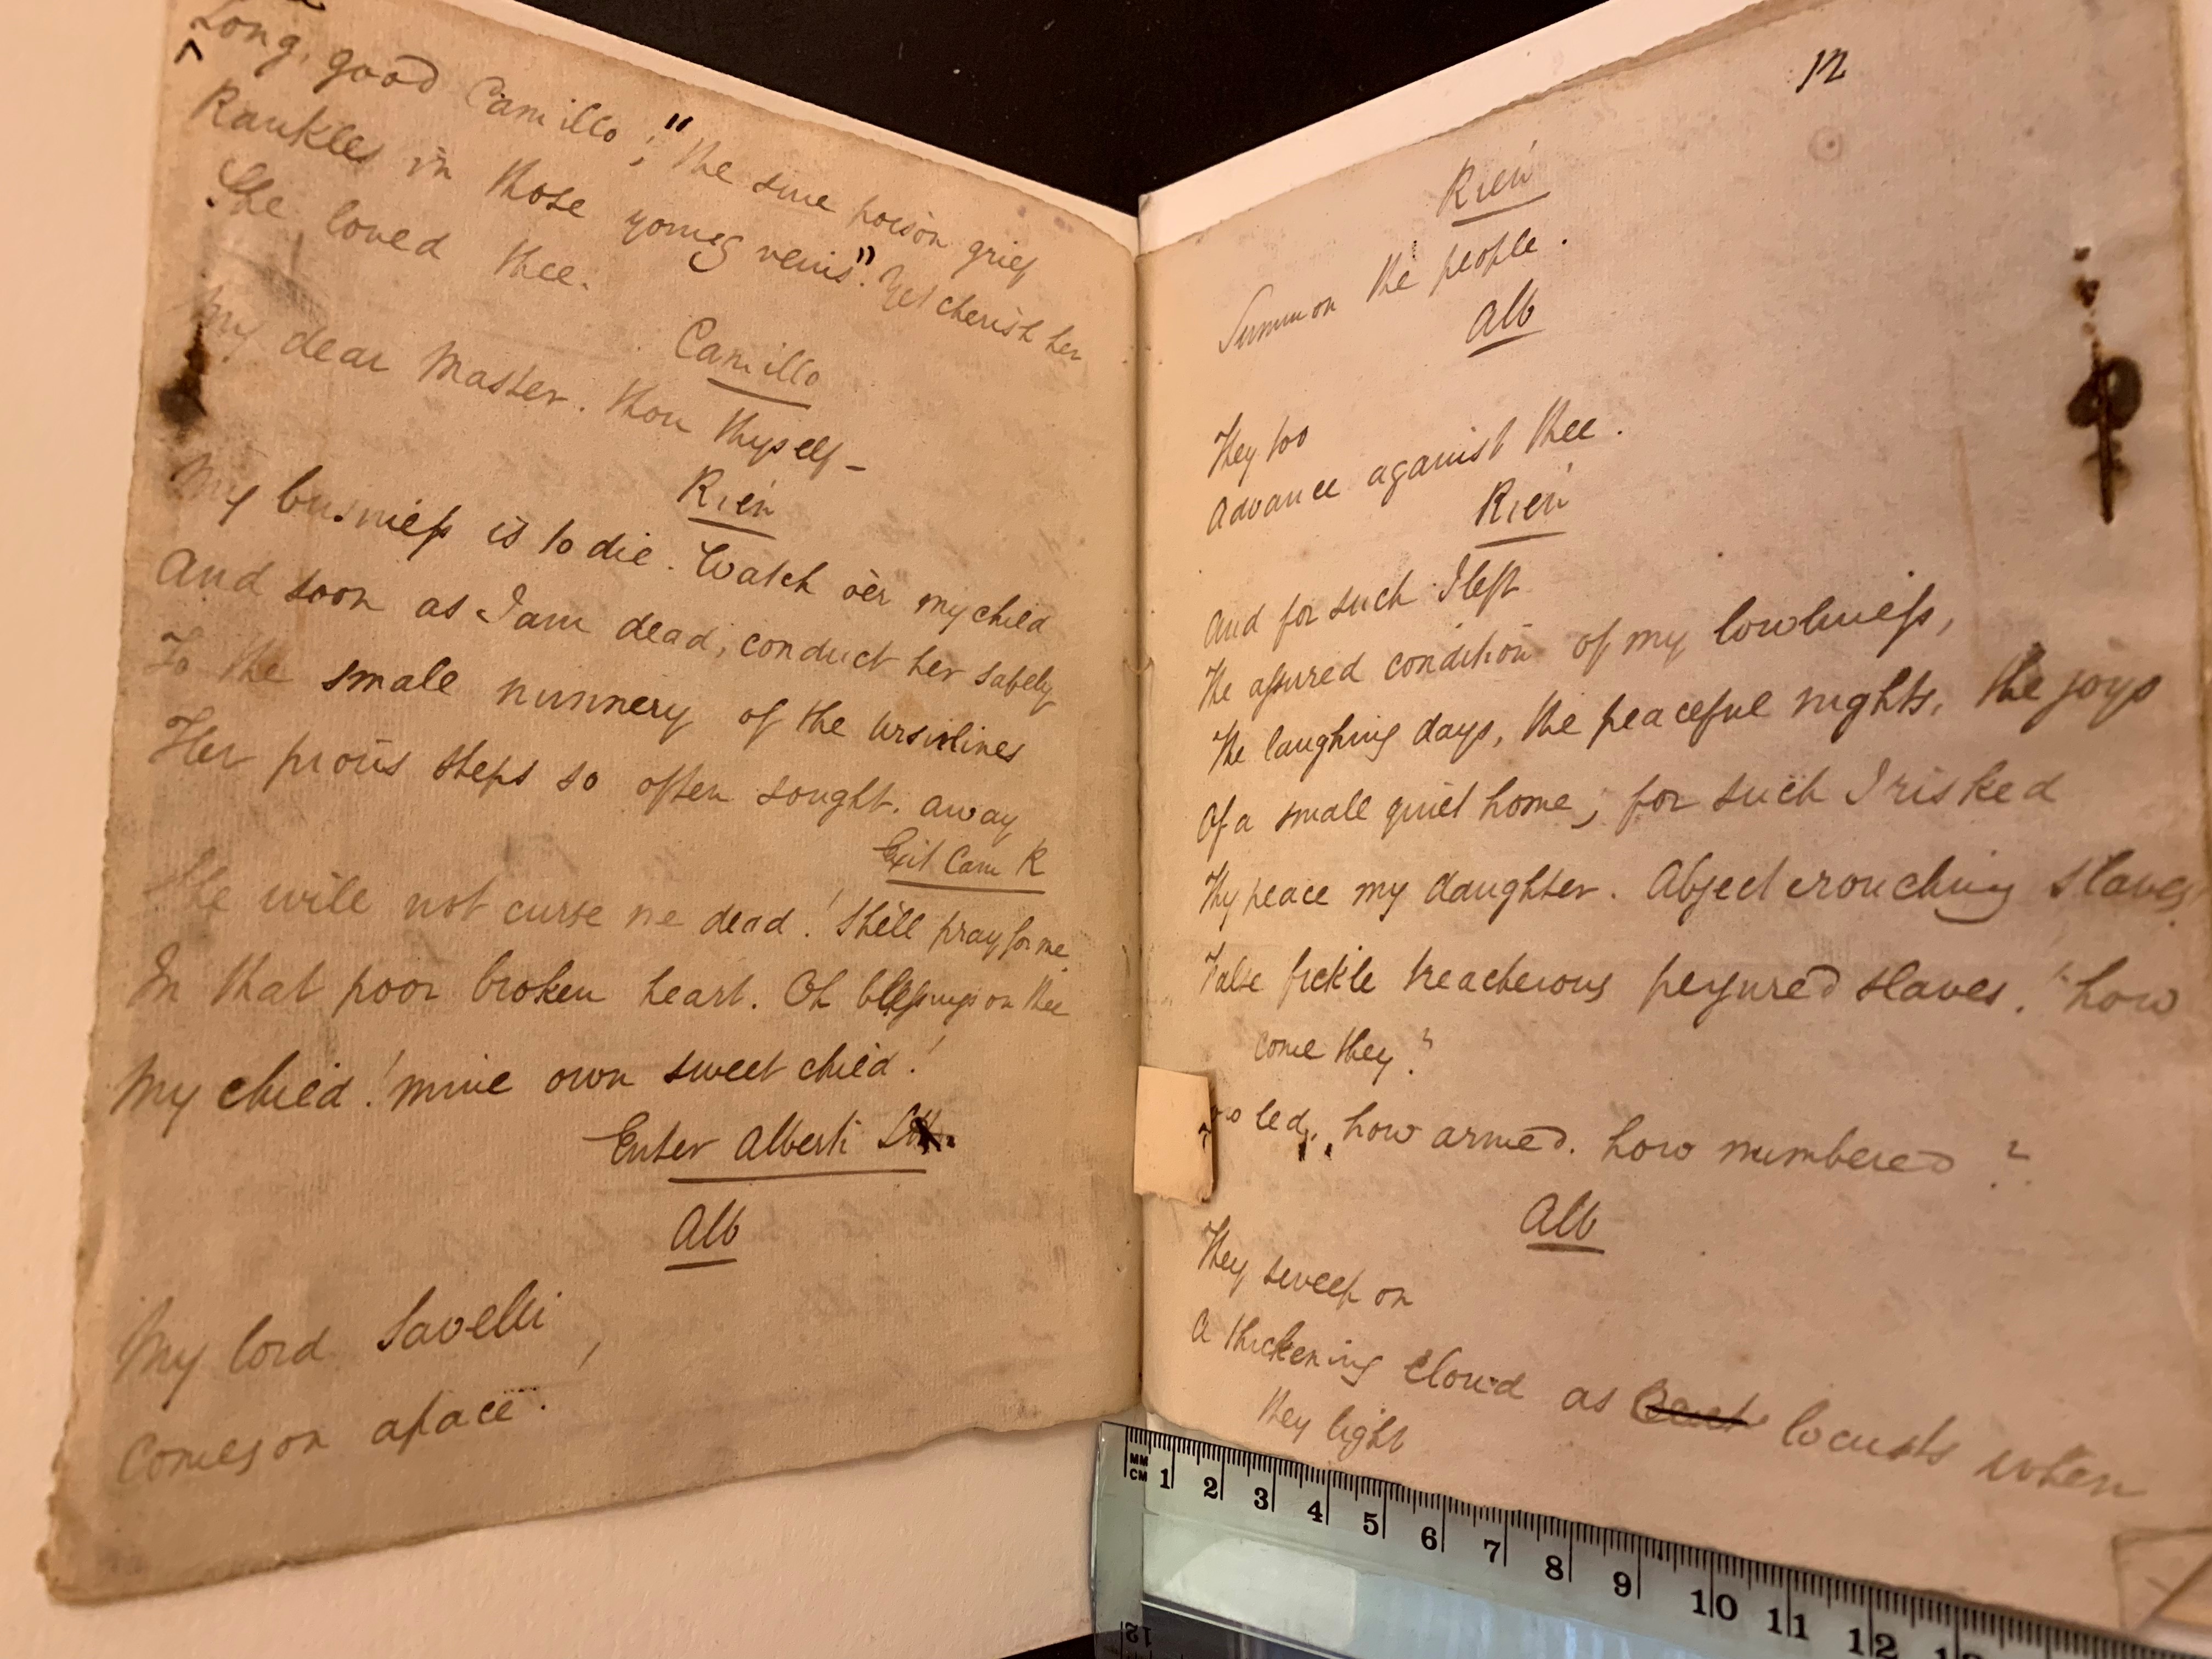 Long, good Camillo; "the sure poison grief
Rankles in those young veins". Yet cherish her
She loved thee.
Camillo
My dear Master. Thou thyself—
Rien
My business is to die. Watch o'er my child
And soon as I am dead, conduct her safely
To the small nunnery of the Ursulines
Her pious steps so often sought. away
Exit Cam R
She will not curse me dead! She'll pray for me
In that poor broken heart. Oh blessings on thee
My child! mine own sweet child!
Enter Alberti
Alb
My lord Savelli,
Comes on apace.
12
Rien
Summon the people.
Alb
They too
Advance against thee.
Rien
And for such I left
The assured condition of my lowliness,
The laughing days, the peaceful nights, the joys
Of a small quiet home; for such I risked
Thy peace my daughter. Abject crouching slaves
False fickle treacherous perjured slaves! how
come they?
led, how armed. how numbered?
Alb
They sweep on
A thickening cloud as locusts when
they light
MM
CM
1 2 3 4 5 6 7 8 9 10 11 12 13
12